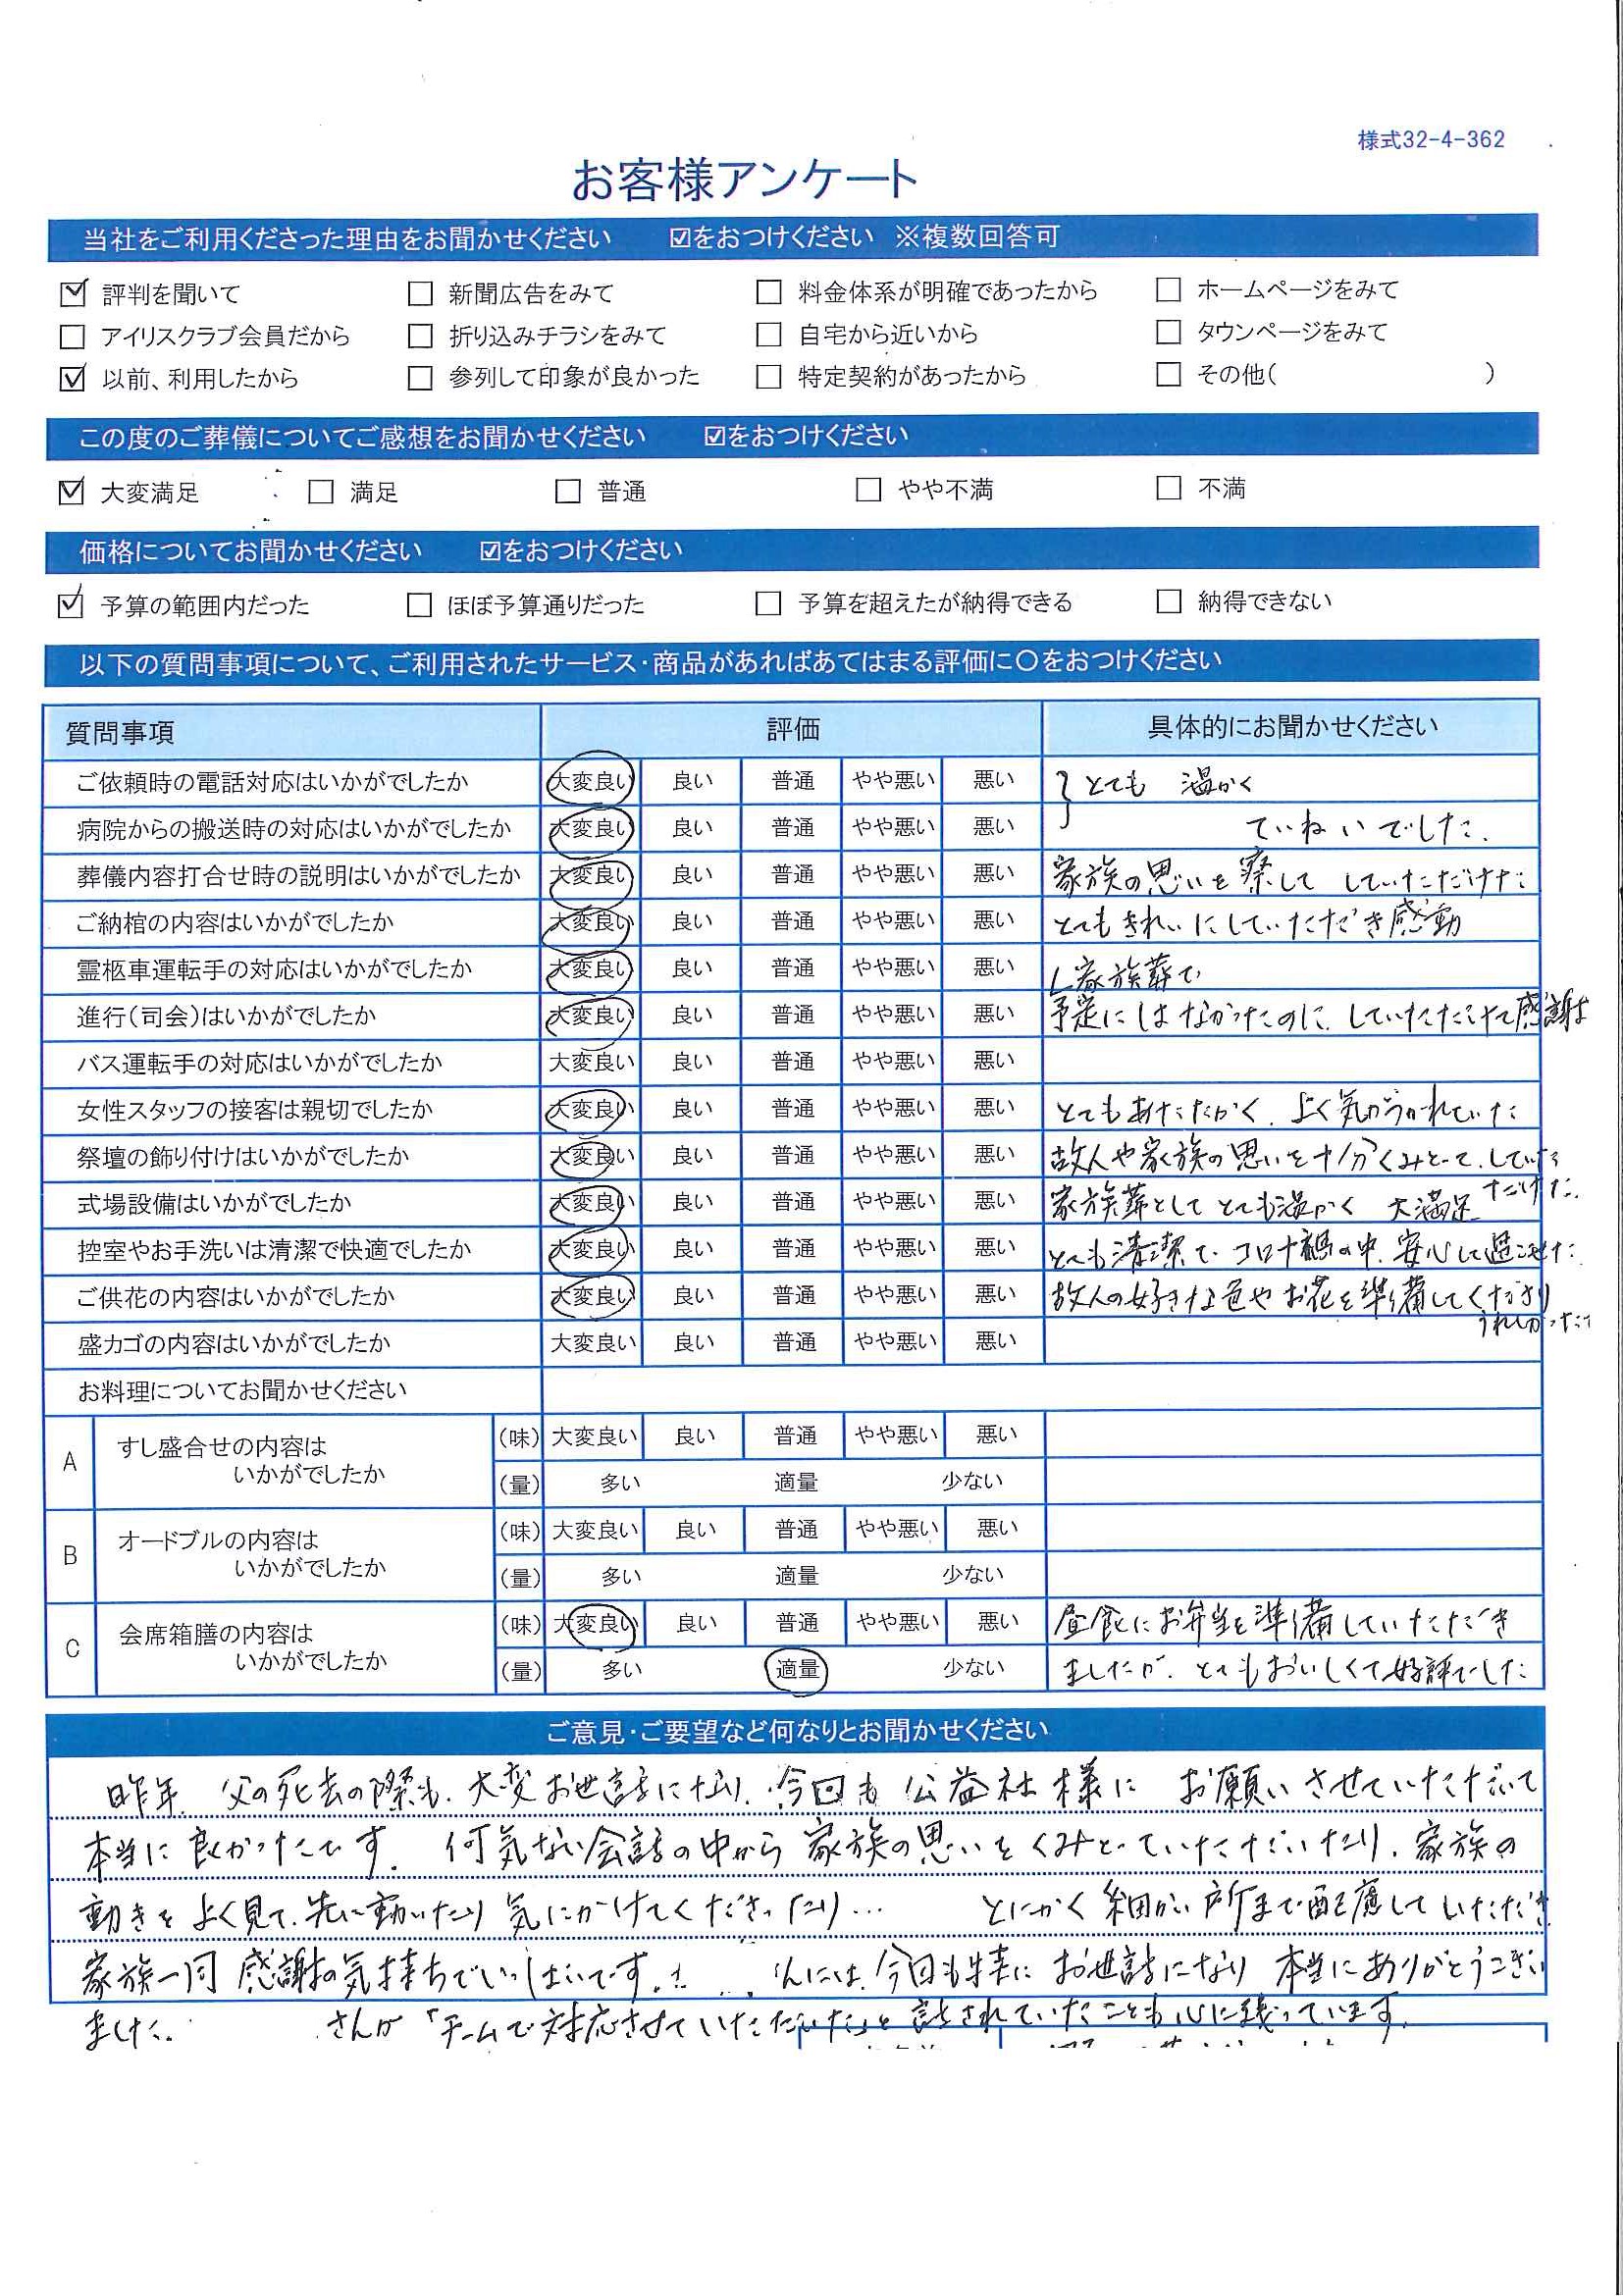 様式32-4-362
お客様アンケート
当社をご利用くださった理由をお聞かせください ☑をおつけください ※複数回答可
☑ 評判を聞いて □ 新聞広告をみて □ 料金体系が明確であったから □ ホームページをみて
□ アイリスクラブ会員だから □ 折り込みチラシをみて □ 自宅から近いから □ タウンページをみて
☑ 以前、利用したから □ 参列して印象が良かった □ 特定契約があったから □ その他( )
この度のご葬儀についてご感想をお聞かせください ☑をおつけください
☑ 大変満足 □ 満足 □ 普通 □ やや不満 □ 不満
価格についてお聞かせください ☑をおつけください
☑ 予算の範囲内だった □ ほぼ予算通りだった □ 予算を超えたが納得できる □ 納得できない
以下の質問事項について、ご利用されたサービス・商品があればあてはまる評価に〇をおつけください
質問事項 評価 具体的にお聞かせください
ご依頼時の電話対応はいかがでしたか 大変良い 良い 普通 やや悪い 悪い とても 温かく
病院からの搬送時の対応はいかがでしたか 大変良い 良い 普通 やや悪い 悪い ていねいでした.
葬儀内容打合せ時の説明はいかがでしたか 大変良い 良い 普通 やや悪い 悪い 家族の思いを察して していただけた
ご納棺の内容はいかがでしたか 大変良い 良い 普通 やや悪い 悪い とてもきれいにしていただき感動
霊柩車運転手の対応はいかがでしたか 大変良い 良い 普通 やや悪い 悪い 家族葬で
進行(司会)はいかがでしたか 大変良い 良い 普通 やや悪い 悪い 予定にはなかったのに、していただけて感謝
バス運転手の対応はいかがでしたか 大変良い 良い 普通 やや悪い 悪い
女性スタッフの接客は親切でしたか 大変良い 良い 普通 やや悪い 悪い とてもあたたかく、よく気がつかれていた
祭壇の飾り付けはいかがでしたか 大変良い 良い 普通 やや悪い 悪い 故人や家族の思いを十分くみとって、していた
だけた.
式場設備はいかがでしたか 大変良い 良い 普通 やや悪い 悪い 家族葬として とても温かく 大満足
控室やお手洗いは清潔で快適でしたか 大変良い 良い 普通 やや悪い 悪い とても清潔で、コロナ禍の中、安心して過ごせた
ご供花の内容はいかがでしたか 大変良い 良い 普通 やや悪い 悪い 故人の好きな色やお花を準備してくださり
うれしかった
盛カゴの内容はいかがでしたか 大変良い 良い 普通 やや悪い 悪い
お料理についてお聞かせください
A すし盛合せの内容は (味) 大変良い 良い 普通 やや悪い 悪い
いかがでしたか (量) 多い 適量 少ない
B オードブルの内容は (味) 大変良い 良い 普通 やや悪い 悪い
いかがでしたか (量) 多い 適量 少ない
C 会席箱膳の内容は (味) 大変良い 良い 普通 やや悪い 悪い 昼食にお弁当を準備していただき
いかがでしたか (量) 多い 適量 少ない ましたが、とてもおいしくて好評でした
ご意見・ご要望など何なりとお聞かせください
昨年、父の死去の際も、大変お世話になり、今回も 公益社様に お願いさせていただいて
本当に良かったです. 何気ない会話の中から 家族の思いをくみとっていただいたり、家族の
動きをよく見て、先に動いたり 気にかけてくださったり… とにかく細かい所まで配慮していただき
家族一同 感謝の気持ちでいっぱいです. んには、今回も特に お世話になり 本当にありがとうござい
ました. さんが「チームで対応させていただいた」と話されていたことも心に残っています.